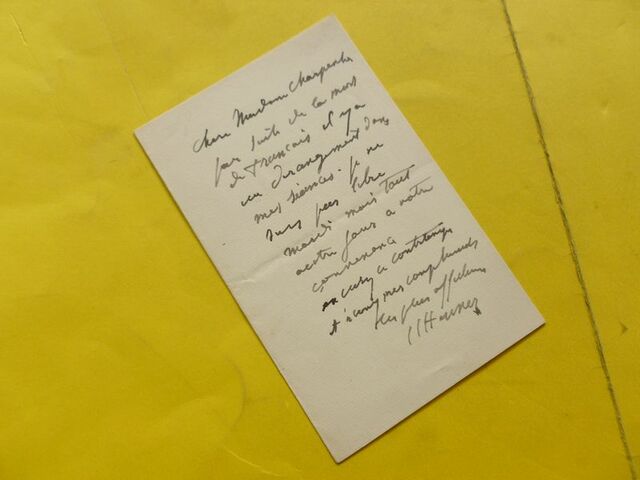 Chere Madame Charpentier
par suite de la mort
de Francais il y a
un derangement dans
mes séances. je ne
suis pas libre
mardi mais tout
autre jour a votre
convenance
excusez ce contretemps
et recevez mes compliments
les plus affectueux
JJ Henner